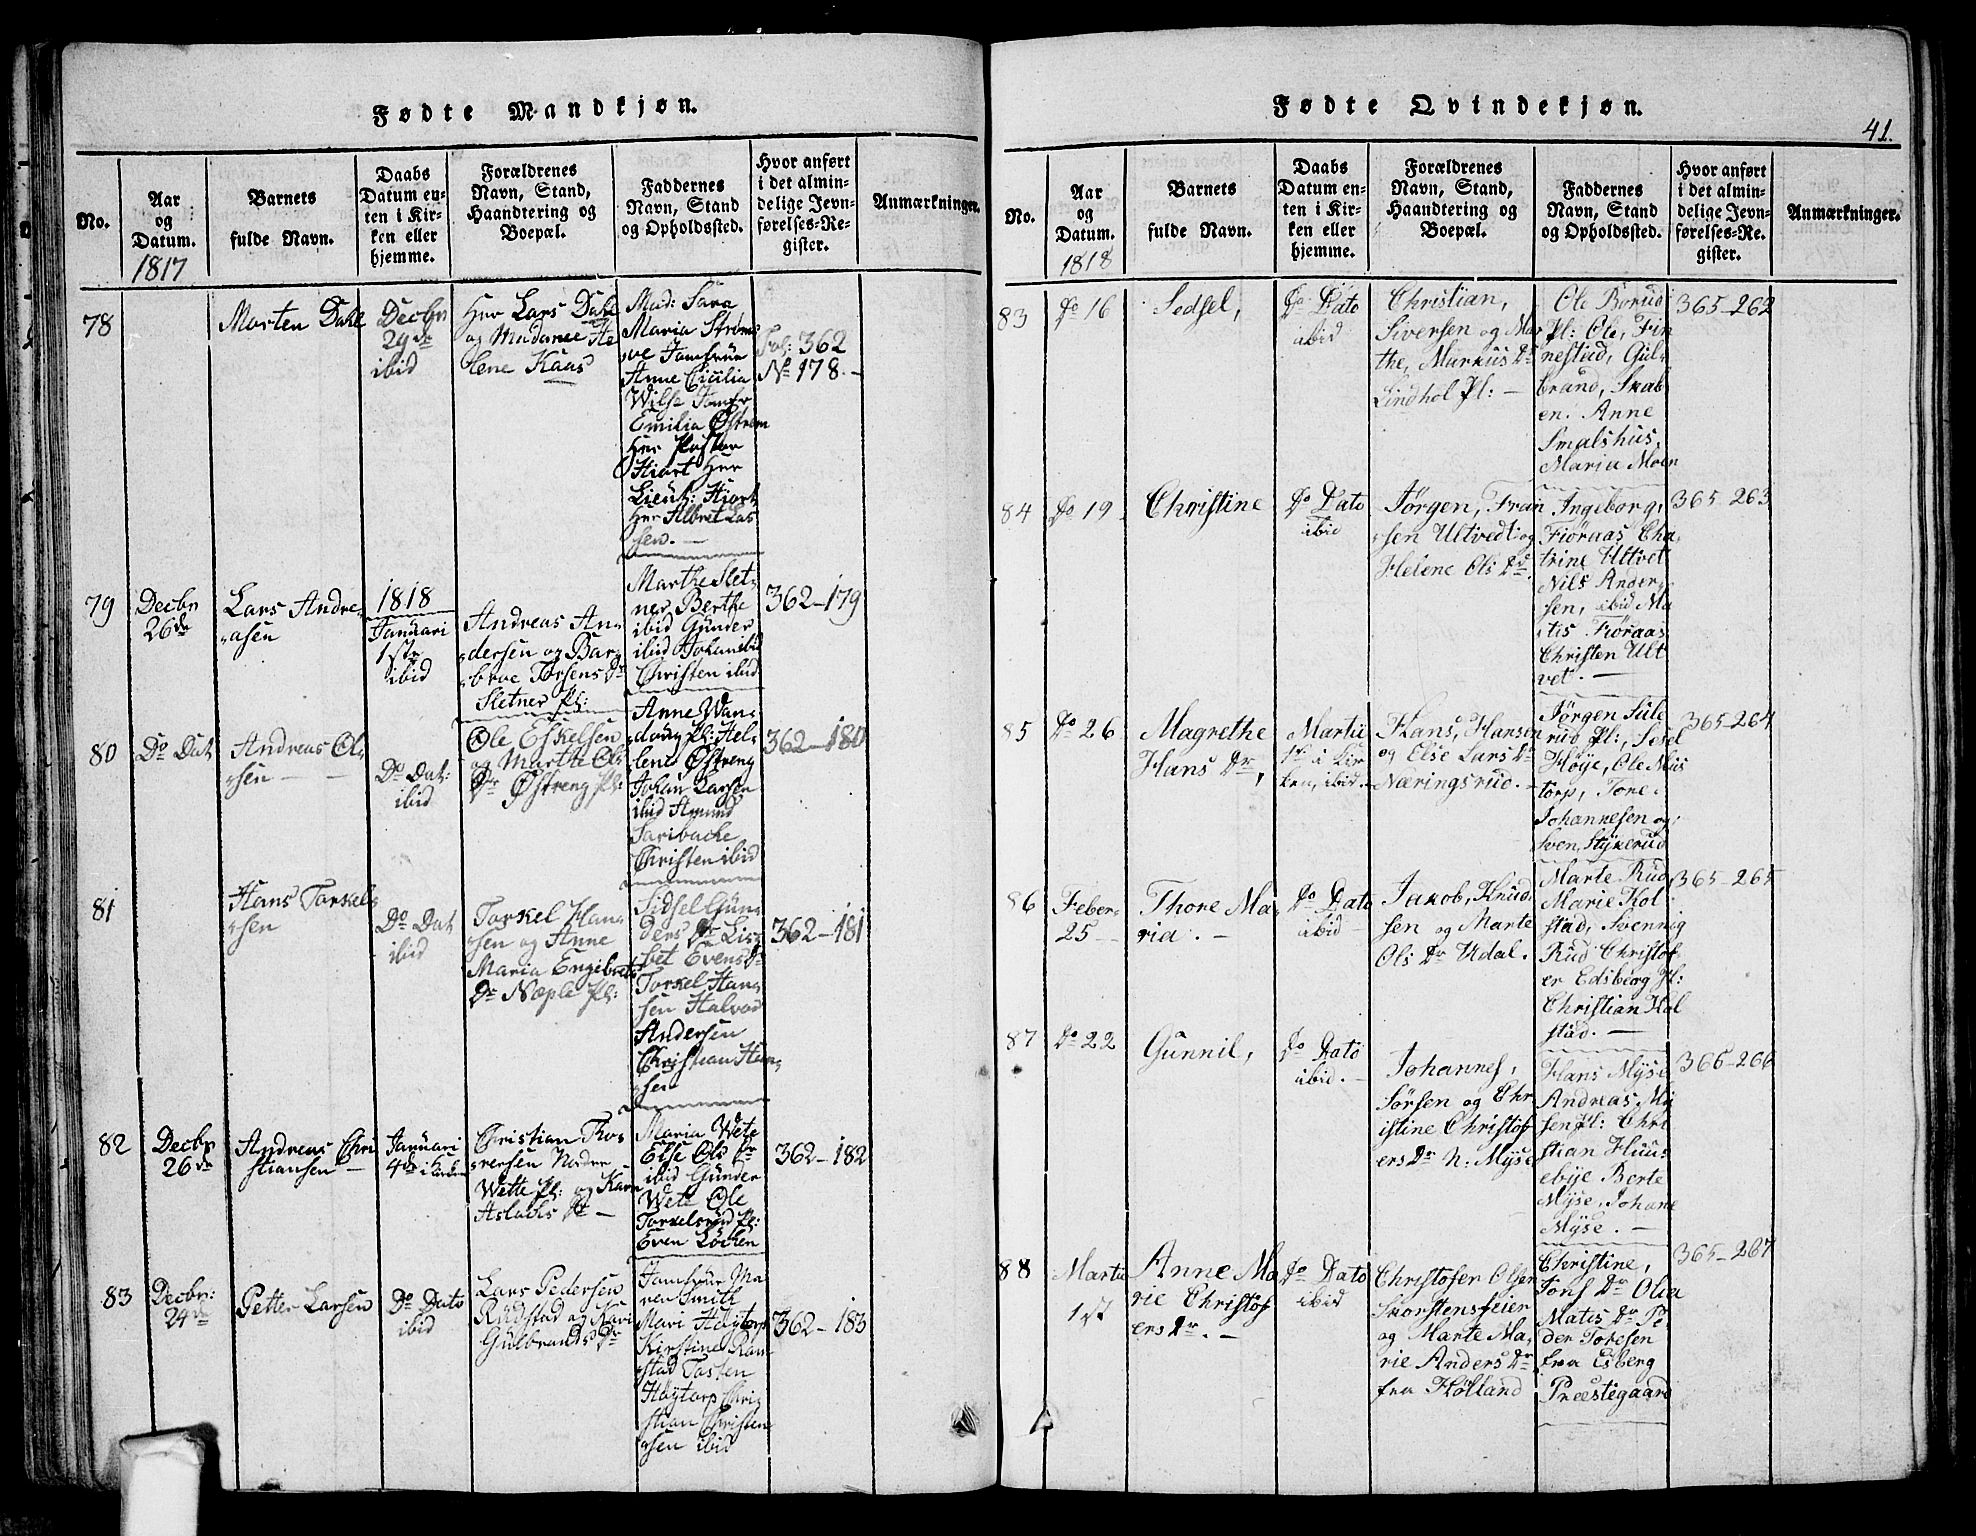 Fødte Mandkjøn.
No.
Aar
og
Datum.
1817
Barnets
fulde Navn.
Daabs
Datum en-
ten i Kir-
ken eller
hjemme.
Forældrenes
Navn, Stand,
Haandtering og
Boepæl.
Faddernes
Navn, Stand
og Opholdssted.
Hvor anført
i det almin-
delige Jevn-
førelses-Re-
gister.
Anmærkninger.
78
Morten Dahl
Decbr
29de
ibid
Herr Lars Dahl
og Madame He
lene Kaas
Mad: Sara
Maria Strøm
ve Jomfrue
Anne Cicilia
Wilse Jomfr
Emilia Østrem
Herr Pastor
Hiort Herr
Lieut: Hiort
Herr Albret Las
sen. —
Fol: 362
No 178. —
79
Decbr
26de
Lars Andre-
asen
1818
Januari
1ste
ibid
Andreas An-
dersen og Bar-
broe Torsens Dr
Sletner Pl:
Marthe Slet-
ner, Berthe
ibid Gunder
ibid Johan ibid
Christen ibid
362-179
80
Do Dat
Andreas Ol-
sen — —
Do Dat:
ibid
Ole Eskelsen
og Marthe Ols
Dr Østreng Pl:
Anne Wan-
dong Pl: Hel-
lene Østreng
Johan Larsen
ibid Amund
Saribache
Christen ibid
362-180
81
Hans Torkel-
sen
Do Dat
ibid
Torkel Han-
sen og Anne
Maria Engebrets
Dr Næple Pl:
Sidsel Gun-
ders Dr Lis-
bet Evens Dr
Torkel Han-
sen Halvor
Andersen
Christian Han-
sen
362-181
82
Decbr
26de
Andreas Chri
stiansen —
Januari
4de i Kirken
Christian Tho-
versen Nedre
Wette Pl: og Karn
Aslachs Dr —
Maria Wete
Else Ols Dr
ibid Gunder
Wete Ole
Torkelsrud Pl:
Even Løcken
362-182
83
Decbr:
24de
Petter Larsen
Do Dato
ibid
Lars Pedersen
Rudstad og Kari
Gulbrands Dr
Jomfrue Ma
ren Smith
Mari Høytorp
Kirstine Ram
stad Tosten
Høytorp Chri-
stian Christen
sen ibid
362-183
Fødte Qvindekjøn.
41.
No.
Aar
og
Datum.
1818
Barnets
fulde Navn.
Daabs
Datum en-
ten i Kir-
ken eller
hjemme.
Forældrenes
Navn, Stand,
Haandtering og
Boepæl.
Faddernes
Navn, Stand
og Opholdssted.
Hvor anført
i det almin-
delige Jevn-
førelses-Re-
gister.
Anmærkninger.
83
Do 16
Sedsel,
Do Dato
ibid
Christian,
Siversen og Mar
the, Markus Dr
Lindhol Pl: —
Ole Borud
Pl: Ole, Fin
nestad, Gul-
brand, Skab
en. Anne
Smalshus,
Maria Moen
365-262
84
Do 19
Christine
Do Dato
ibid
Jørgen, Fran
sen Ultvedt og
Helene Ols Dr
Ingeborg,
Fiøraas Cha-
trine Ultvet
Nils Ander-
sen, ibid Ma
tis Fiøraas
Christen Ult
vet. —
365-263
85
Do 26
Magrethe
Hans Dr,
Martii
1st i Kir
ken, ibid. —
Hans, Hansen
og Else Lars Dr
Næringsrud. —
Jørgen Sule
rud Pl:, Sesel
Høije, Ole Mis
torp, Tore
Johannesen og
Sven, Stykerud
365-264
86
Feber-
25 —
Thore Ma-
ria. —
Do Dato
ibid —
Jakob, Knud-
sen og Marte
Ols Dr Udal.
Marte Rud
Marie Kol
stad, Svennig
Rud Christof
er Edsberg Pl:
Christian Kol
stad. —
365-265
87
Do 22
Gunnil,
Do Dato
ibid. —
Johannes,
Sørsen og Chr
istine Christof
ers Dr N: Myse
Hans Myse
Andreas, My
sen Pl: Chri
stian Huus
ebye Berte
Myse, Johane
Myse. —
366-266
88
Martii
1st
Anne Ma
rie Christof
ers Dr. —
Do Dato
ibid
Christofer Olsen
Skorstensfeier
og Marte Ma-
rie Anders Dr
fra Hølland
Christine,
Jons Dr Olia
Matis Dr Pe-
der Toresen
fra Esberg
Præstegaard
365-267